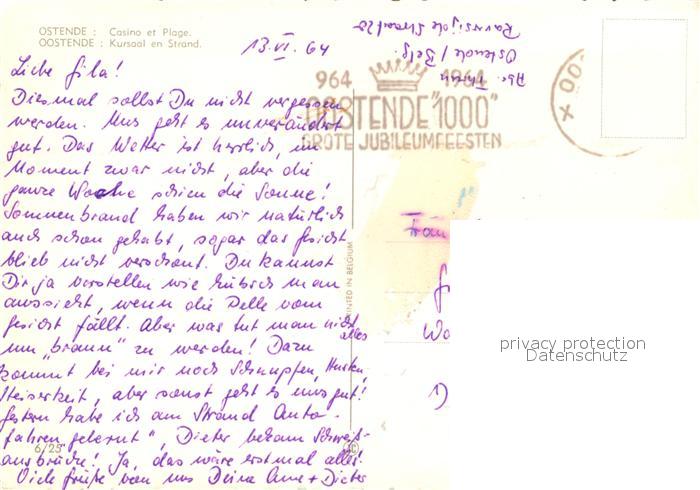 OSTENDE : Casino et Plage.
OOSTENDE : Kursaal en Strand.
13. VI. 64
Liebe Gila!
Diesmal sollst Du nicht vergessen
werden. Uns geht es unverändert
gut. Das Wetter ist herrlich, im
Moment zwar nicht, aber die
ganze Woche schien die Sonne!
Sonnenbrand haben wir natürlich
auch schon gehabt, sogar das Gesicht
blieb nicht verschont. Du kannst
Dir ja vorstellen wie hübsch man
aussieht, wenn die Pelle vom
Gesicht fällt. Aber was tut man nicht alles
um "braun" zu werden! Dazu
kommt bei mir noch Schnupfen, Husten,
Heiserkeit, aber sonst geht es uns gut!
Gestern habe ich am Strand "Auto-
fahren gelernt", Dieter bekam Schweiß-
ausbrüche! Ja, das wäre erstmal alles.
Viele Grüße von uns Deine + Dieter
6/25
PRINTED IN BELGIUM
Abs.
Ostende / Belg.
964 1964
OOSTENDE "1000"
GROTE JUBILEUMFEESTEN
X OO
Frau
Wo
privacy protection
Datenschutz